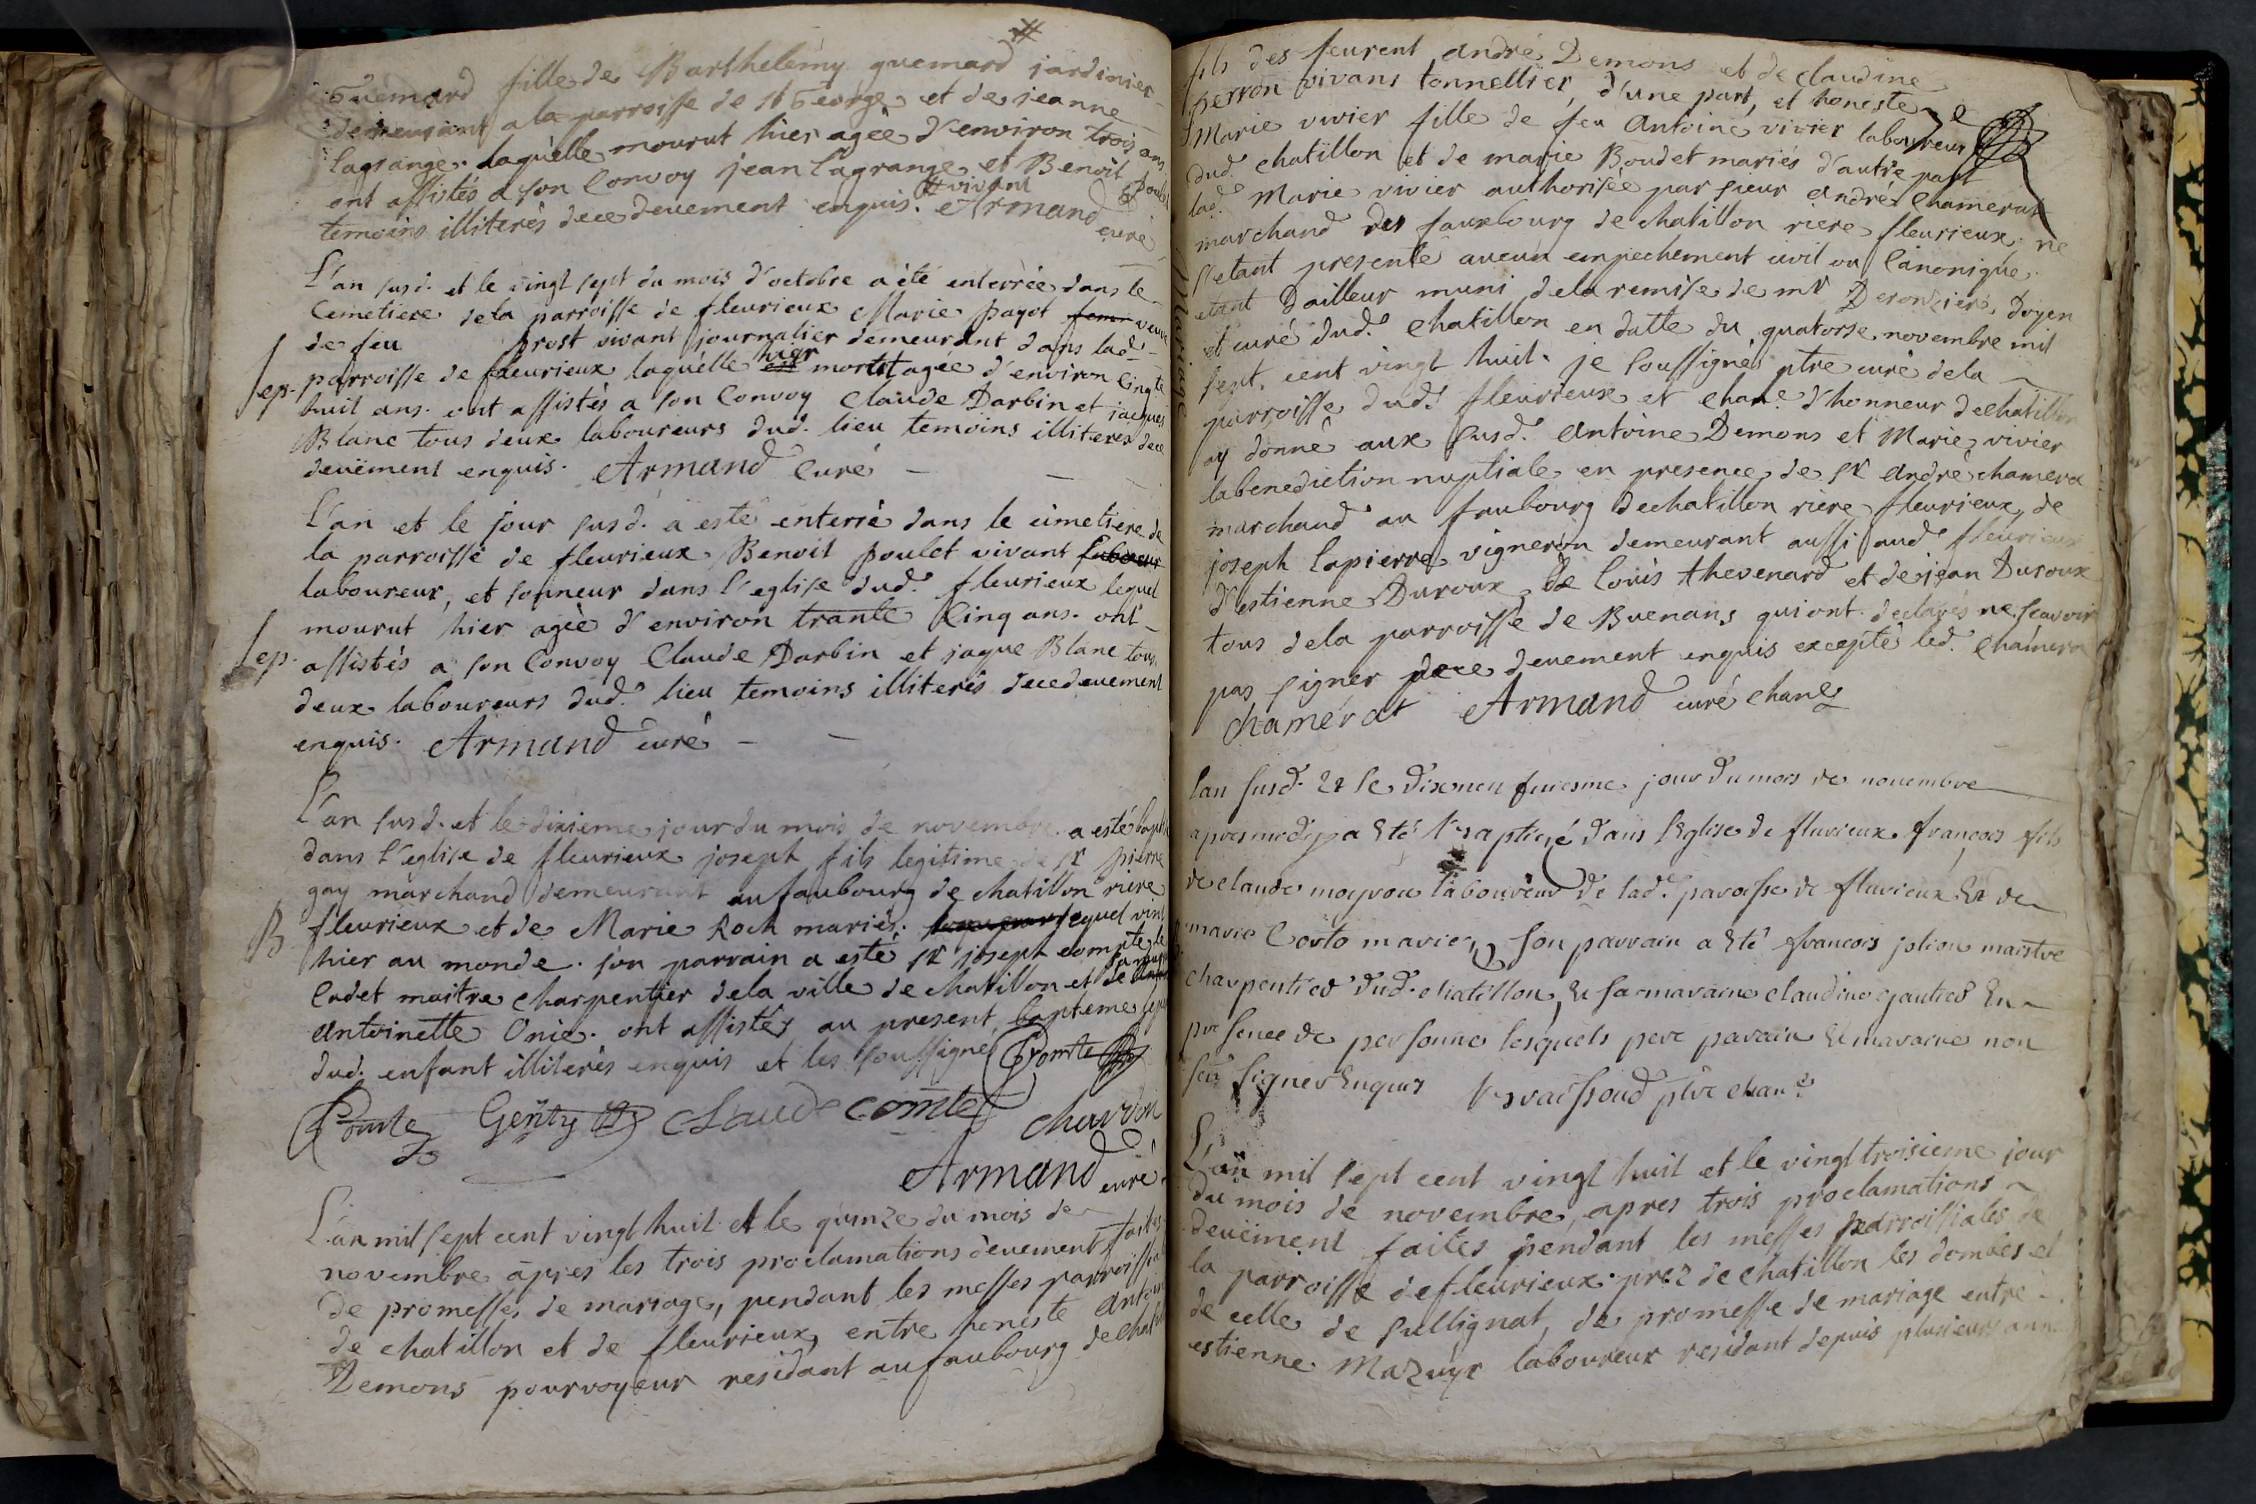 #
Guemard fille de Barthelemy guemard jardinier
demeurant a la parroisse de st George et de jeanne
lagrange. laquelle mourut hier agèe d'environ trois ans
ont assistés a son Convoy jean lagrange et Benoit Poulet
# vivant
temoins illiterés dece deuement enquis. Armand curé
L'an susd. et le vingt sept du mois d'octobre a èté enterrèe dans le
Cemetiere dela parroisse de fleurieux Marie pagot veuve
de feu prost vivant journalier demeurant dans lad.
Sep. parroisse de fleurieux laquelle hier mortet agèe d'environ Cinqte
huit ans. ont assistés a son Convoy Claude Darbin et jacques
Blanc tous deux laboureurs dud. lieu temoins illiterés dece
deuëment enquis. Armand Curé
L'an et le jour susd. a esté enterré dans le cimetiere de
la parroisse de fleurieux Benoit poulet vivant
laboureur, et sonneur dans l'eglise dud. fleurieux lequel
mourut hier agèe d'environ trante Cinq ans. ont
Sep. assistés a son Convoy Claude Darbin et jaque Blanc tous
deux laboureurs dud. lieu temoins illiterés dece deuement
enquis. Armand curé
L'an susd. et le dixieme jour du mois de novembre a esté bapt
dans l'eglise de fleurieux joseph fils legitime de sr pierre
gay marchand demeurant au faubourg de chatillon riere
B fleurieux et de Marie Roch mariés. lequel vint
hier au monde. son parrain a esté sr joseph comte le
Cadet maitre charpentier dela ville de chatillon et
Antoinette Onie. ont assistés au present bapteme le pere
dud. enfant illiterés enquis et les soussignés Comte
Comte Genty Claude comte chardon
Armand curé
L'an mil sept cent vingt huit et le quinze du mois de
novembre apres les trois proclamations deuement faites
de promesses de mariage, pendant les messes parroissiales
de chatillon et de fleurieux, entre honeste Antoine
Demons pourvoyeur residant au faubourg de chatillon
fils des feurent andré Demons et de claudine
perron vivans tonnellier, d'une part, et honeste
Marie vivier fille de feu Antoine vivier laboureur
dud. chatillon et de marie Boudet mariés d'autre part
lad. Marie vivier authorisée par sieur andré Chamerat
marchand des fauxbourg de chatillon riere fleurieux. ne
s'etant presenté aucun empechement civil ou Canonique.
Mariage
etant Dailleur muni dela remise de mr Deronzier, Doyen
et curé dud. Chatillon en datte du quatorse novembre mil
sept. cent vingt huit. je soussigné ptre curé dela
parroisse dud. fleurieux et chane. d'honneur dechatillon
ay donné aux susd. Antoine Demons et Marie vivier
la benediction nuptiale en presence de sr André chamera
marchand au faubourg dechatillon riere fleurieux, de
joseph lapierre vigneron demeurant aussi aud. fleurieux
d'estienne Duroux de Louis thevenard et de jean Duroux
tous dela parroisse de Buenans qui ont declarés ne scavoir
pas signer dece deuement enquis excepté led. Chamera
chamérat Armand curé chane
lan susd. Et le dixneufuiesme jour du mois de nouembre
apres midy a Eté Baptizé dans lEglise de flurieux francois fils
de claude moyrou laboureur de lad. paroisse de flurieux Et de
marie Corto maries, son parrain a Eté francois jolion maistre
charpentier dud. chatillon, Et sa maraine claudine gautier En
presence de personne lesquels pere parain Et maraine non
sceu signer Enquis Braissoud ptre chan.
L'an mil sept cent vingt huit et le vingt troisieme jour
du mois de novembre, apres trois proclamations
deuëment faites pendant les messes parroissiales de
la parroisse de fleurieux prez de chatillon les dombes et
de celle de sullignat, de promesse de mariage entre
estienne Mazuyr laboureur residant depuis plusieurs ann